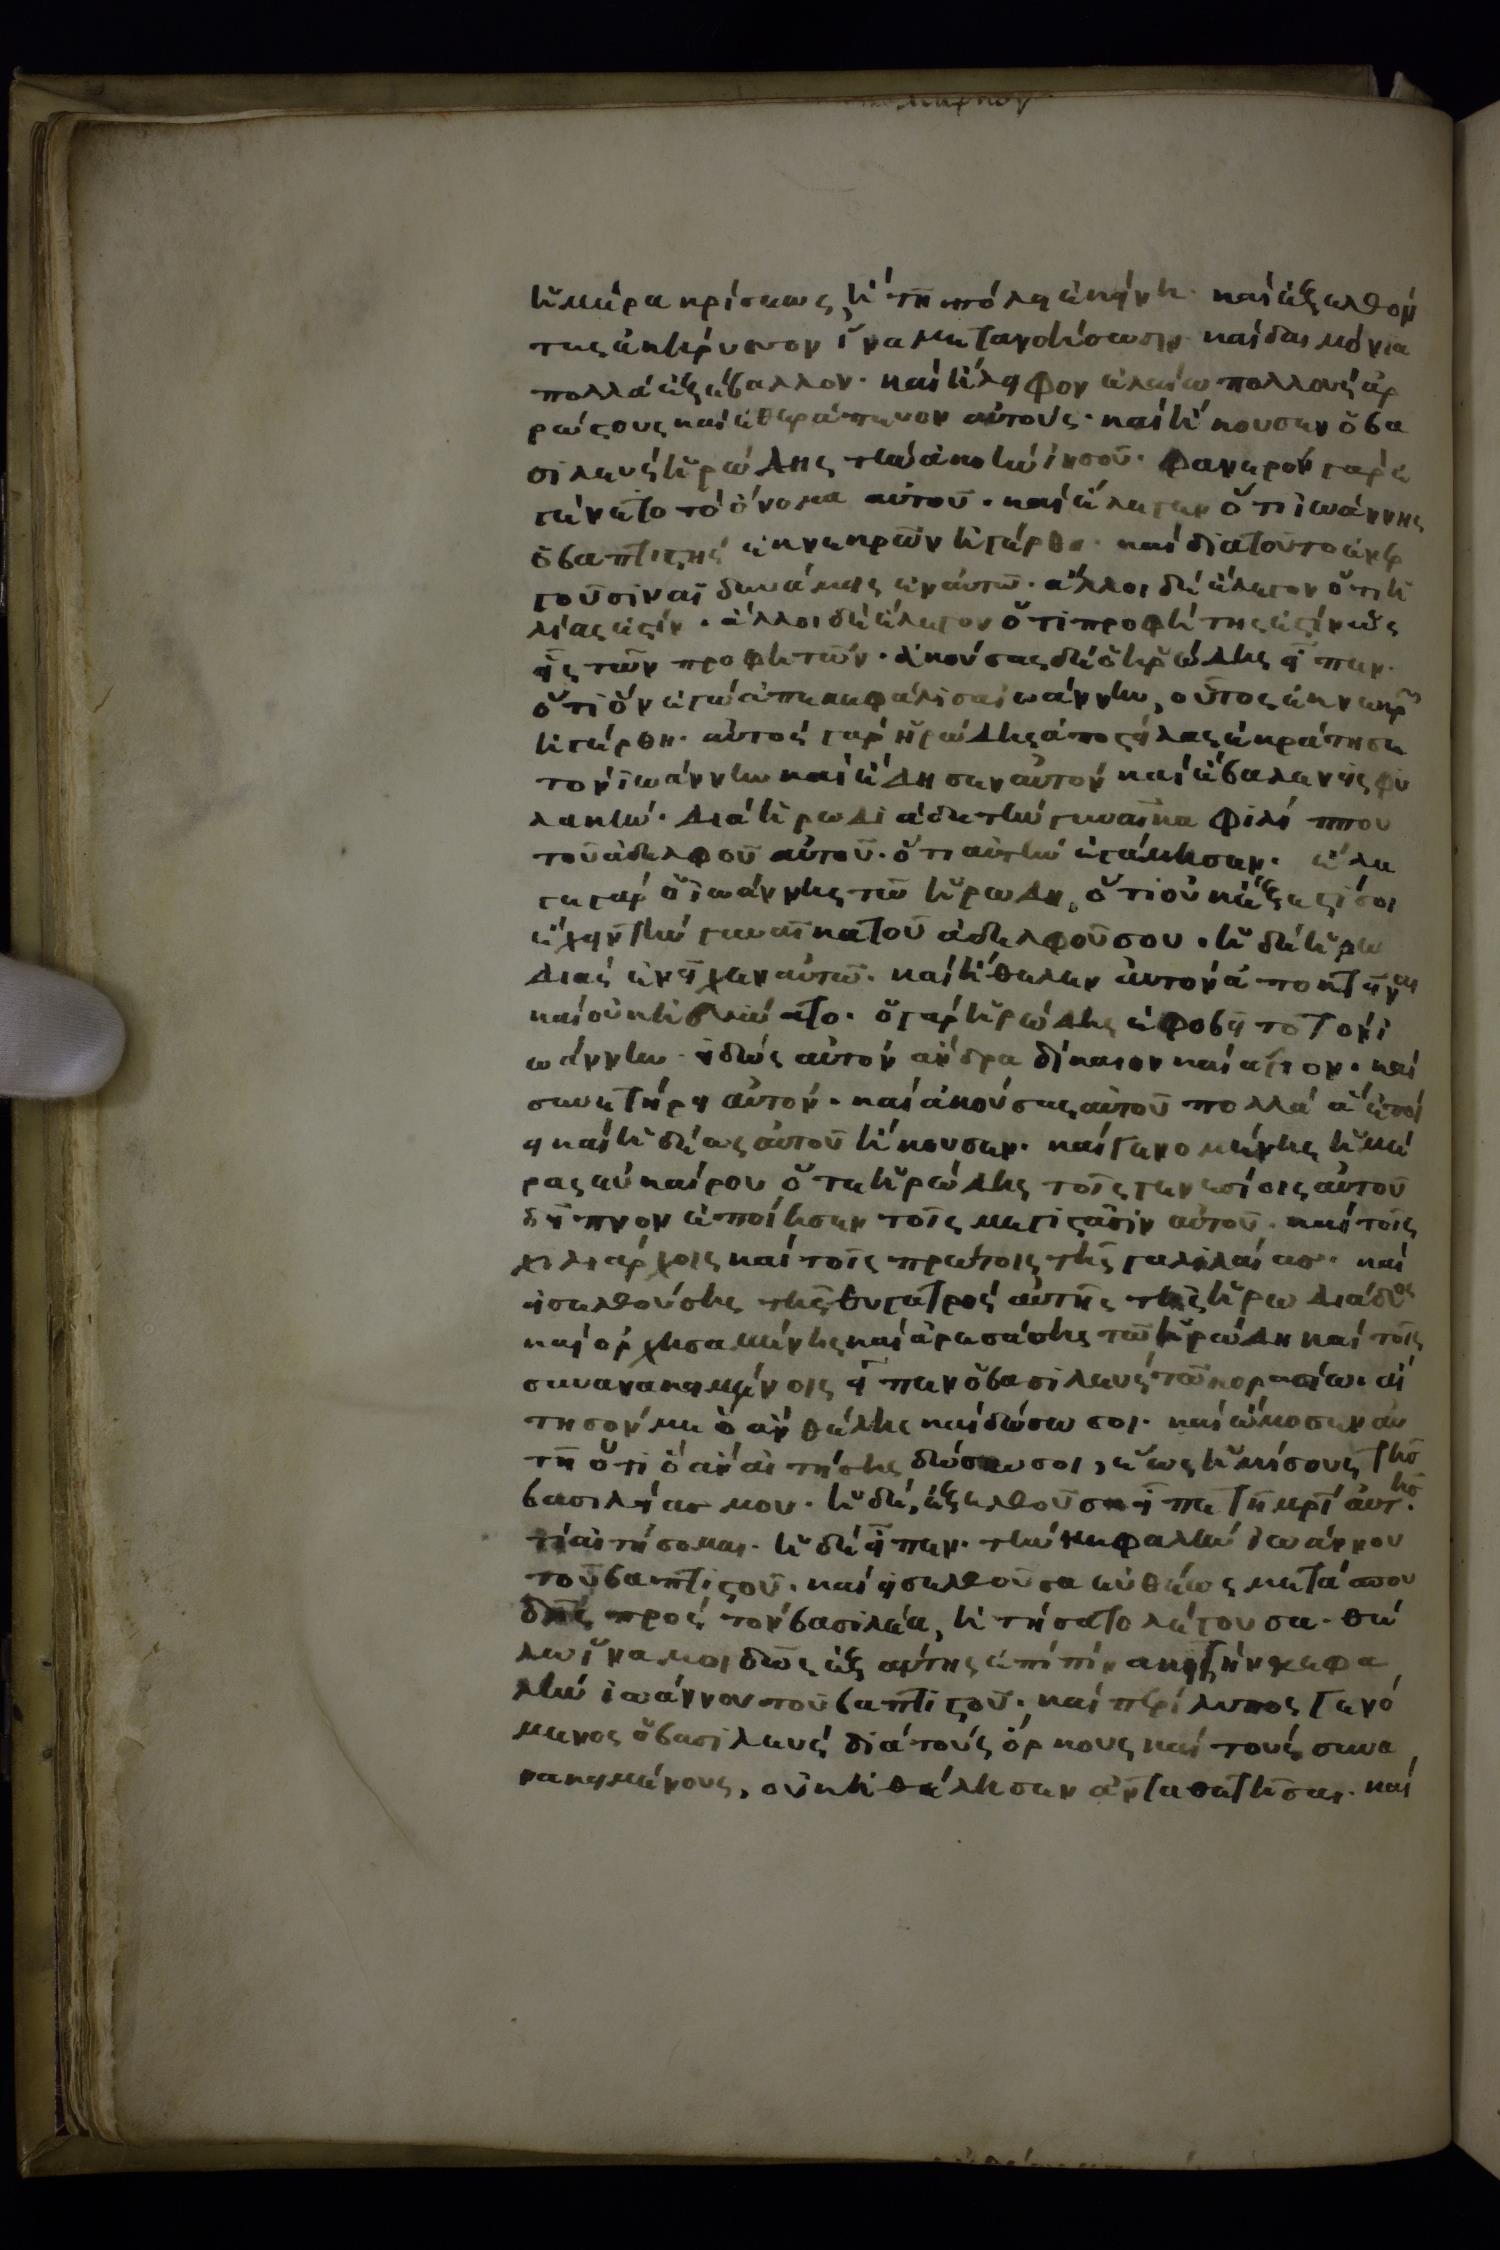 ἡμέρα κρίσεως, ἢ τῆ πόλει ἐκείνη. καὶ ἐξελθόν
τες ἐκήρυσσον ἵνα μετανοήσωσιν. καὶ δαιμόνια
πολλὰ ἐξέβαλλον. καὶ ἤλειφον ἐλαίω πολλοὺς ἀρ
ρώστους καὶ ἐθεράπευον αὐτούς. καὶ ἤκουσεν ὁ βα
σιλεὺς ἡρώδης τὴν ἀκοὴν ἰησοῦ. φανερὸν γὰρ ἐ
γένετο τὸ ὄνομα αὐτοῦ. καὶ ἔλεγεν ὅτι ἰωάννης
ὁ βαπτιστὴς ἐκ νεκρῶν ἠγέρθη. καὶ διατοῦτο ἐνερ
γοῦσιν αἱ δυνάμεις ἐν αὐτῶ. ἄλλοι δὲ ἔλεγον ὅτι ἠ
λίας ἐστίν. ἄλλοι δὲ ἔλεγον ὅτι προφήτης ἐστὶν ὡς
εἷς τῶν προφητῶν. ἀκούσας δὲ ὁ ἡρώδης εἶπεν.
ὅτι ὃν ἐγὼ ἀπεκεφάλισα ἰωάννην, οὗτος ἐκ νεκρῶ
ἠγέρθη. αὐτὸς γὰρ ἡρώδης ἀποστείλας ἐκράτησε
τὸν ἰωάννην καὶ ἔδησεν αὐτὸν καὶ ἔβαλεν εἰς φυ
λακήν. διὰ ἡρωδιάδα τὴν γυναῖκα φιλίππου
τοῦ ἀδελφοῦ αὐτοῦ. ὅτι αὐτὴν ἐγάμησεν. ἔλε
γε γὰρ ὁ ἰωάννης τῶ ἡρώδη, ὅτι οὐκ ἔξεστί σοι
ἔχειν τὴν γυναῖκα τοῦ ἀδελφοῦ σου. ἡ δὲ ἡρω
διὰς ἐνεῖχεν αὐτῶ. καὶ ἤθελεν αὐτὸν ἀποκτεῖναι
καὶ οὐκ ἠδύνατο. ὁ γὰρ ἡρώδης ἐφοβεῖτο τὸν ἰ
ωάννην. εἰδὼς αὐτὸν ἄνδρα δίκαιον καὶ ἅγιον. καὶ
συνετήρει αὐτόν. καὶ ἀκούσας αὐτοῦ πολλὰ ἃ ἐποί
ει καὶ ἡδέως αὐτοῦ ἤκουσεν. καὶ γενομένης ἡμέ
ρας εὐκαίρου ὅτε ἡρώδης τοῖς γενεσίοις αὐτοῦ
δεῖπνον ἐποίησεν τοῖς μεγιστᾶσιν αὐτοῦ. καὶ τοῖς
χιλιάρχοις καὶ τοῖς πρώτοις τῆς γαλιλαίας. καὶ
εἰσελθούσης τῆς θυγατρὸς αὐτῆς τῆς ἡρωδιάδος
καὶ ὀρχησαμένης καὶ ἀρεσάσης τῶ ἡρώδη καὶ τοῖς
συνανακειμένοις εἶπεν ὁ βασιλεὺς τῶ κορασίω. αἴ
τησόν με ὃ ἂν θέλης καὶ δώσω σοι. καὶ ὤμοσεν αὐ
τῆ ὅτι ὃ ἂν αἰτήσης δώσω σοι, ἕως ἡμίσους τῆς
βασιλείας μου. ἡ δὲ, ἐξελθοῦσα εἶπε τῆ μρὶ αὐτῆς.
τί αἰτήσομαι. ἡ δὲ εἶπεν. τὴν κεφαλὴν ἰωάννου
τοῦ βαπτιστοῦ. καὶ εἰσελθοῦσα εὐθέως μετὰ σπου
δῆς πρὸς τὸν βασιλέα, ἠτήσατο λέγουσα. θέ
λω ἵνα μοι δῶς ἐξ αὐτῆς ἐπὶ πίνακι τὴν κεφα
λὴν ἰωάννου τοῦ βαπτιστοῦ. καὶ περίλυπος γενό
μενος ὁ βασιλεὺς διὰ τοὺς ὅρκους καὶ τοὺς συνα
νακειμένους, οὐκ ἠθέλησεν ἀθετῆσαι. καὶ